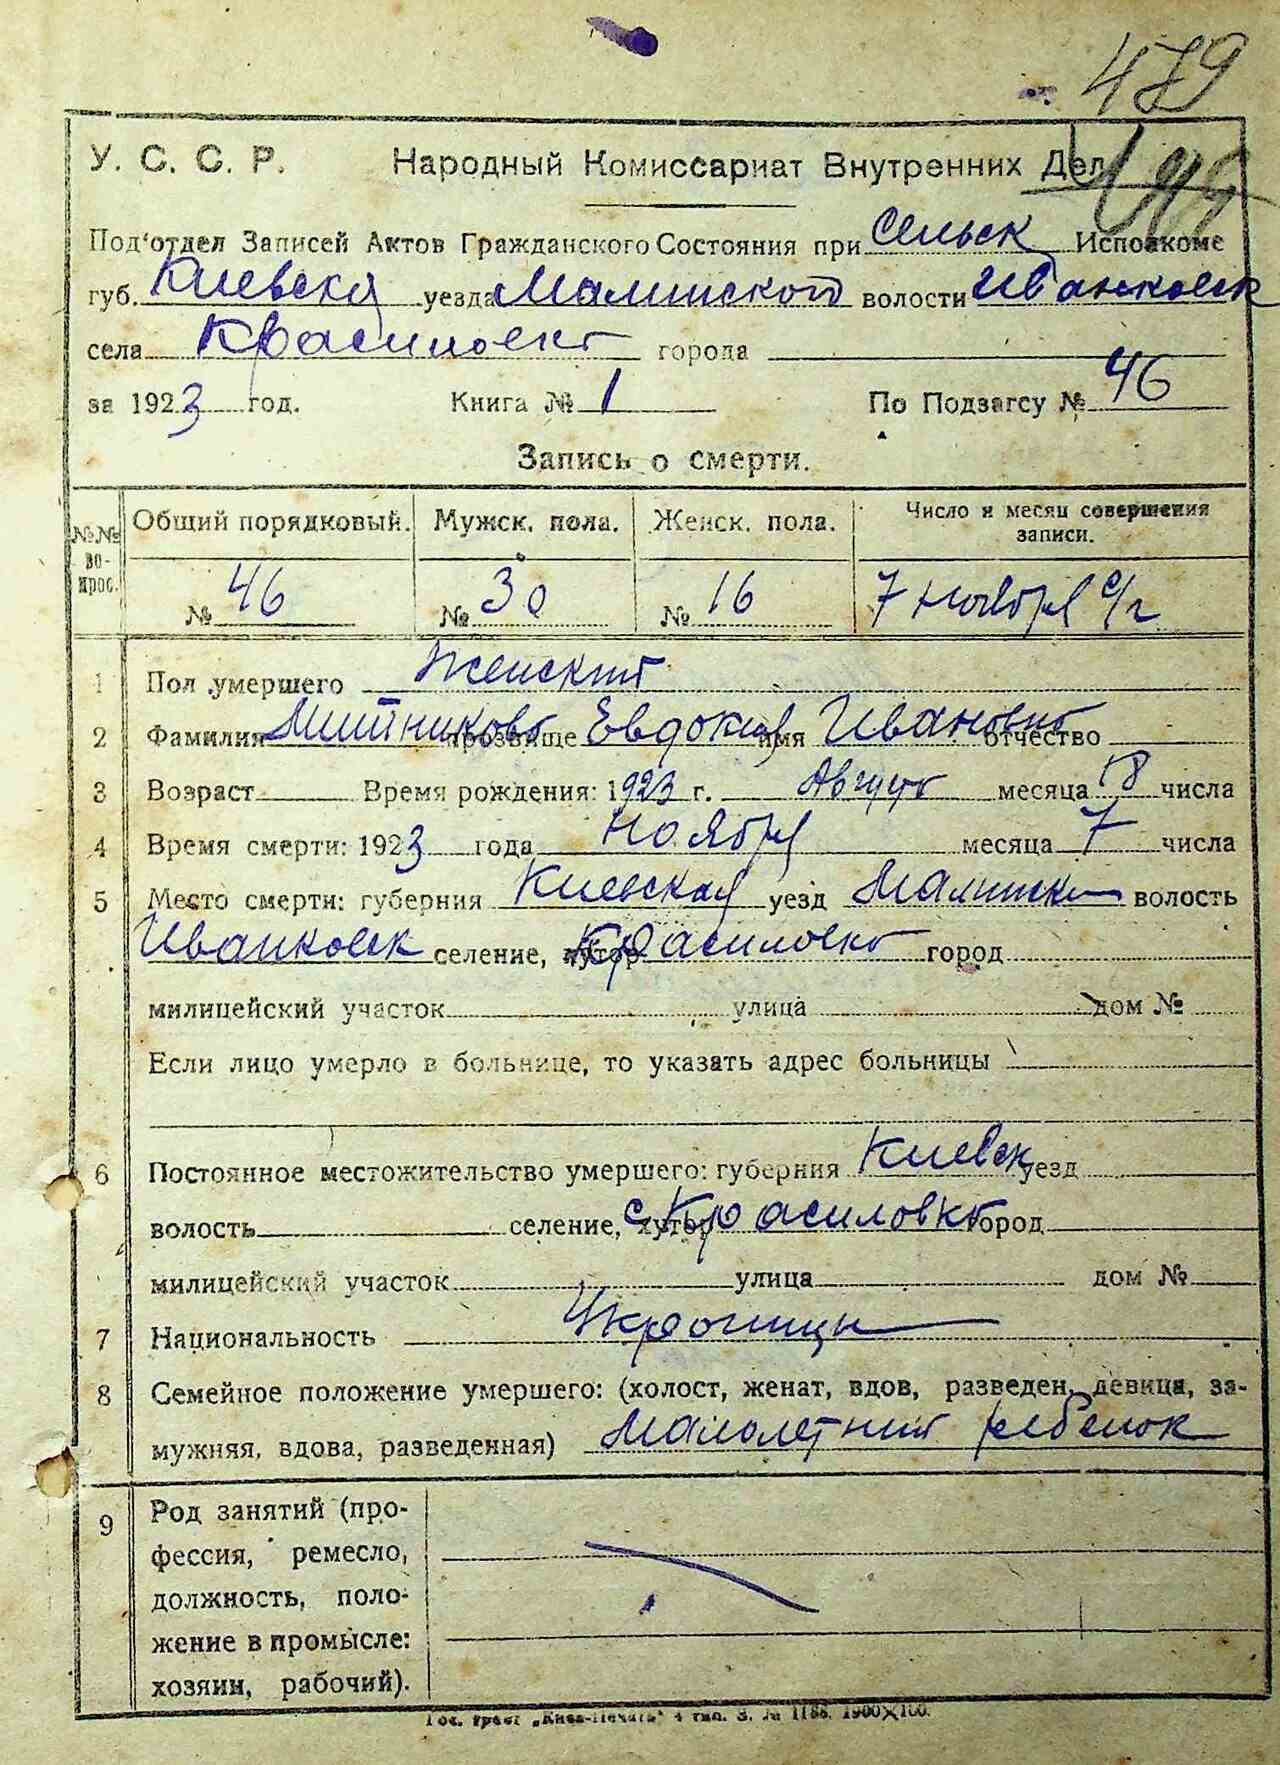 479
У. С. С. Р. Народный Комиссариат Внутренних Дел
Под'отдел Записей Актов Гражданского Состояния при Сельск Исполкоме
губ. Киевская уезда Малинской волости Иванковск
села Красиловка города
за 1923 год. Книга № 1 По Подзагсу № 46
Запись о смерти.
№№ вопрос. Общий порядковый. Мужск. пола. Женск. пола. Число и месяц совершения записи.
№ 46 № 30 № 16 7 ноября с/г
1 Пол умершего Женский
2 Фамилия прозвище Евдокия имя Ивановна отчество
3 Возраст Время рождения: 1923 г. Август месяца 18 числа
4 Время смерти: 1923 года ноября месяца 7 числа
5 Место смерти: губерния Киевская уезд Малинск волость
Иванковск селение, хутор Красиловка город
милицейский участок улица дом №
Если лицо умерло в больнице, то указать адрес больницы
6 Постоянное местожительство умершего: губерния Киевск уезд
волость селение, хутор с. Красиловка город
милицейский участок улица дом №
7 Национальность
8 Семейное положение умершего: (холост, женат, вдов, разведен, девица, за-
мужняя, вдова, разведенная) Малолетний ребенок
9 Род занятий (про-
фессия, ремесло,
должность, поло-
жение в промысле:
хозяин, рабочий).
Гос. трест „Киев-Печать" 4 тип. З. № 1188. 1900×100.